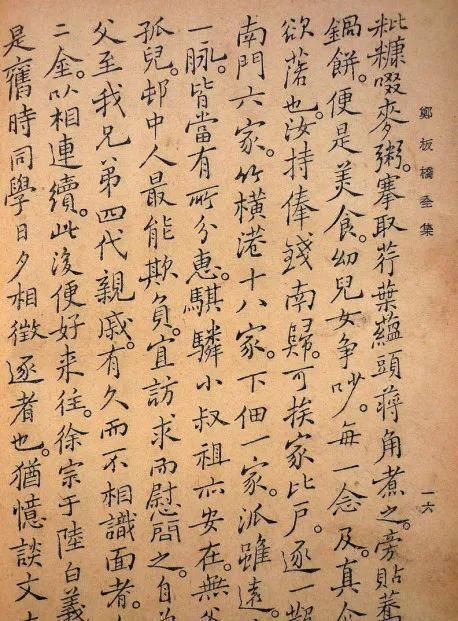 鄭板橋全集
一六
粃糠啜麥粥。搴取荇葉蘊頭蔣角煮之。旁貼蕎
鍋餅。便是美食。幼兒女爭吵。每一念及。真含
欲落也。汝持俸錢南歸。可挨家比戶。逐一散
南門六家。竹橫港十八家。下佃一家。派雖遠。
一脈。皆當有所分惠。騏驎小叔祖亦安在。無
孤兒。邨中人最能欺負。宜訪求而慰問之。自
父至我兄弟四代親戚。有久而不相識面者。
二金。以相連續。此後便好来往。徐宗于陸白義
是舊時同學日夕相徵逐者也。猶憶談文